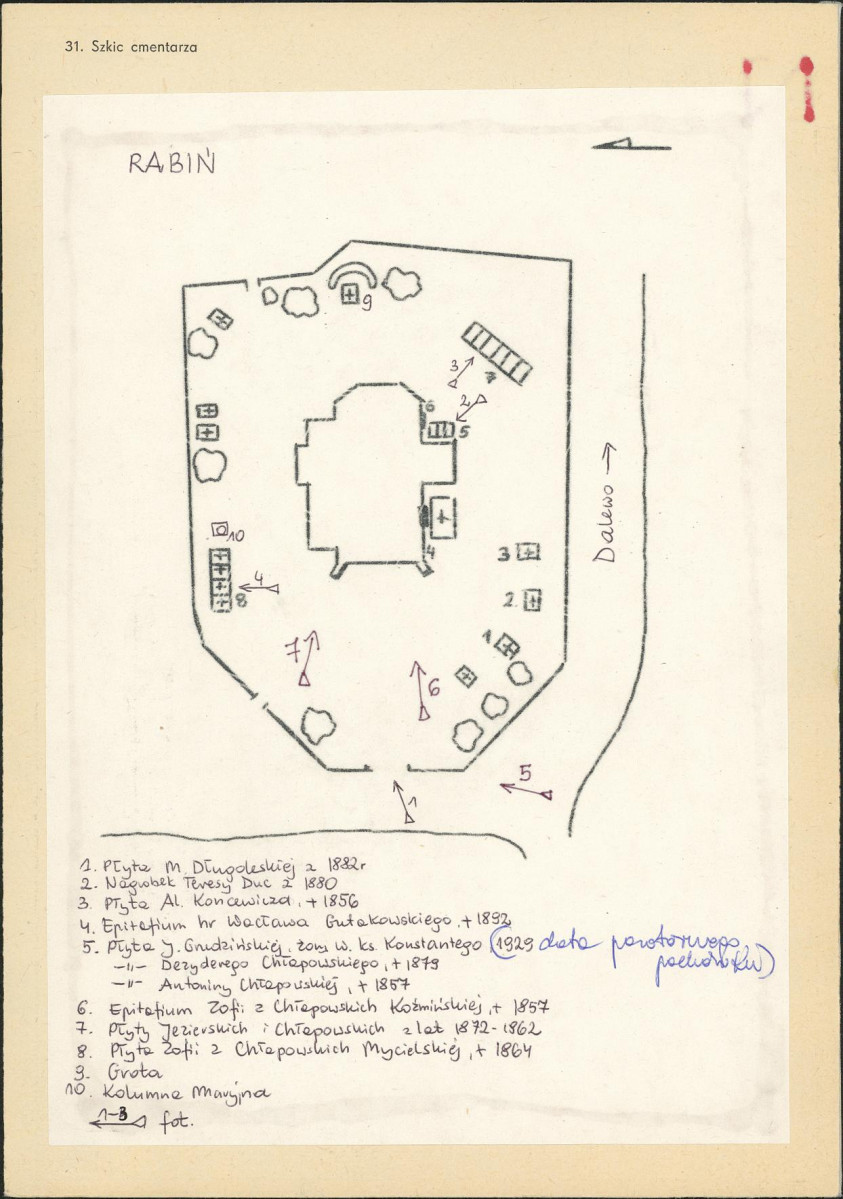 31. Szkic cmentarza
RABIŃ
9
3
7
2
6
5
Dalewo →
10
4
3
4
8
2.
1
7
6
5
1
1. Płyta M. Długołęskiej z 1882r
2. Nagrobek Teresy Duc z 1880
3. Płyta Al. Koncewicza, + 1856
4. Epitafium hr Wacława Gutakowskiego, + 1892
5. Płyta J. Grudzińskiej, żony w. ks. Konstantego (1929 data powtórnego
pochówku)
-"- Dezyderego Chłapowskiego, + 1879
-"- Antoniny Chłapowskiej, + 1857
6. Epitafium Zofii z Chłapowskich Koźmińskiej, + 1857
7. Płyty Jezierskich i Chłapowskich z lat 1872-1862
8. Płyta Zofii z Chłapowskich Mycielskiej, + 1864
9. Grota
10. Kolumna Maryjna
1-3 fot.